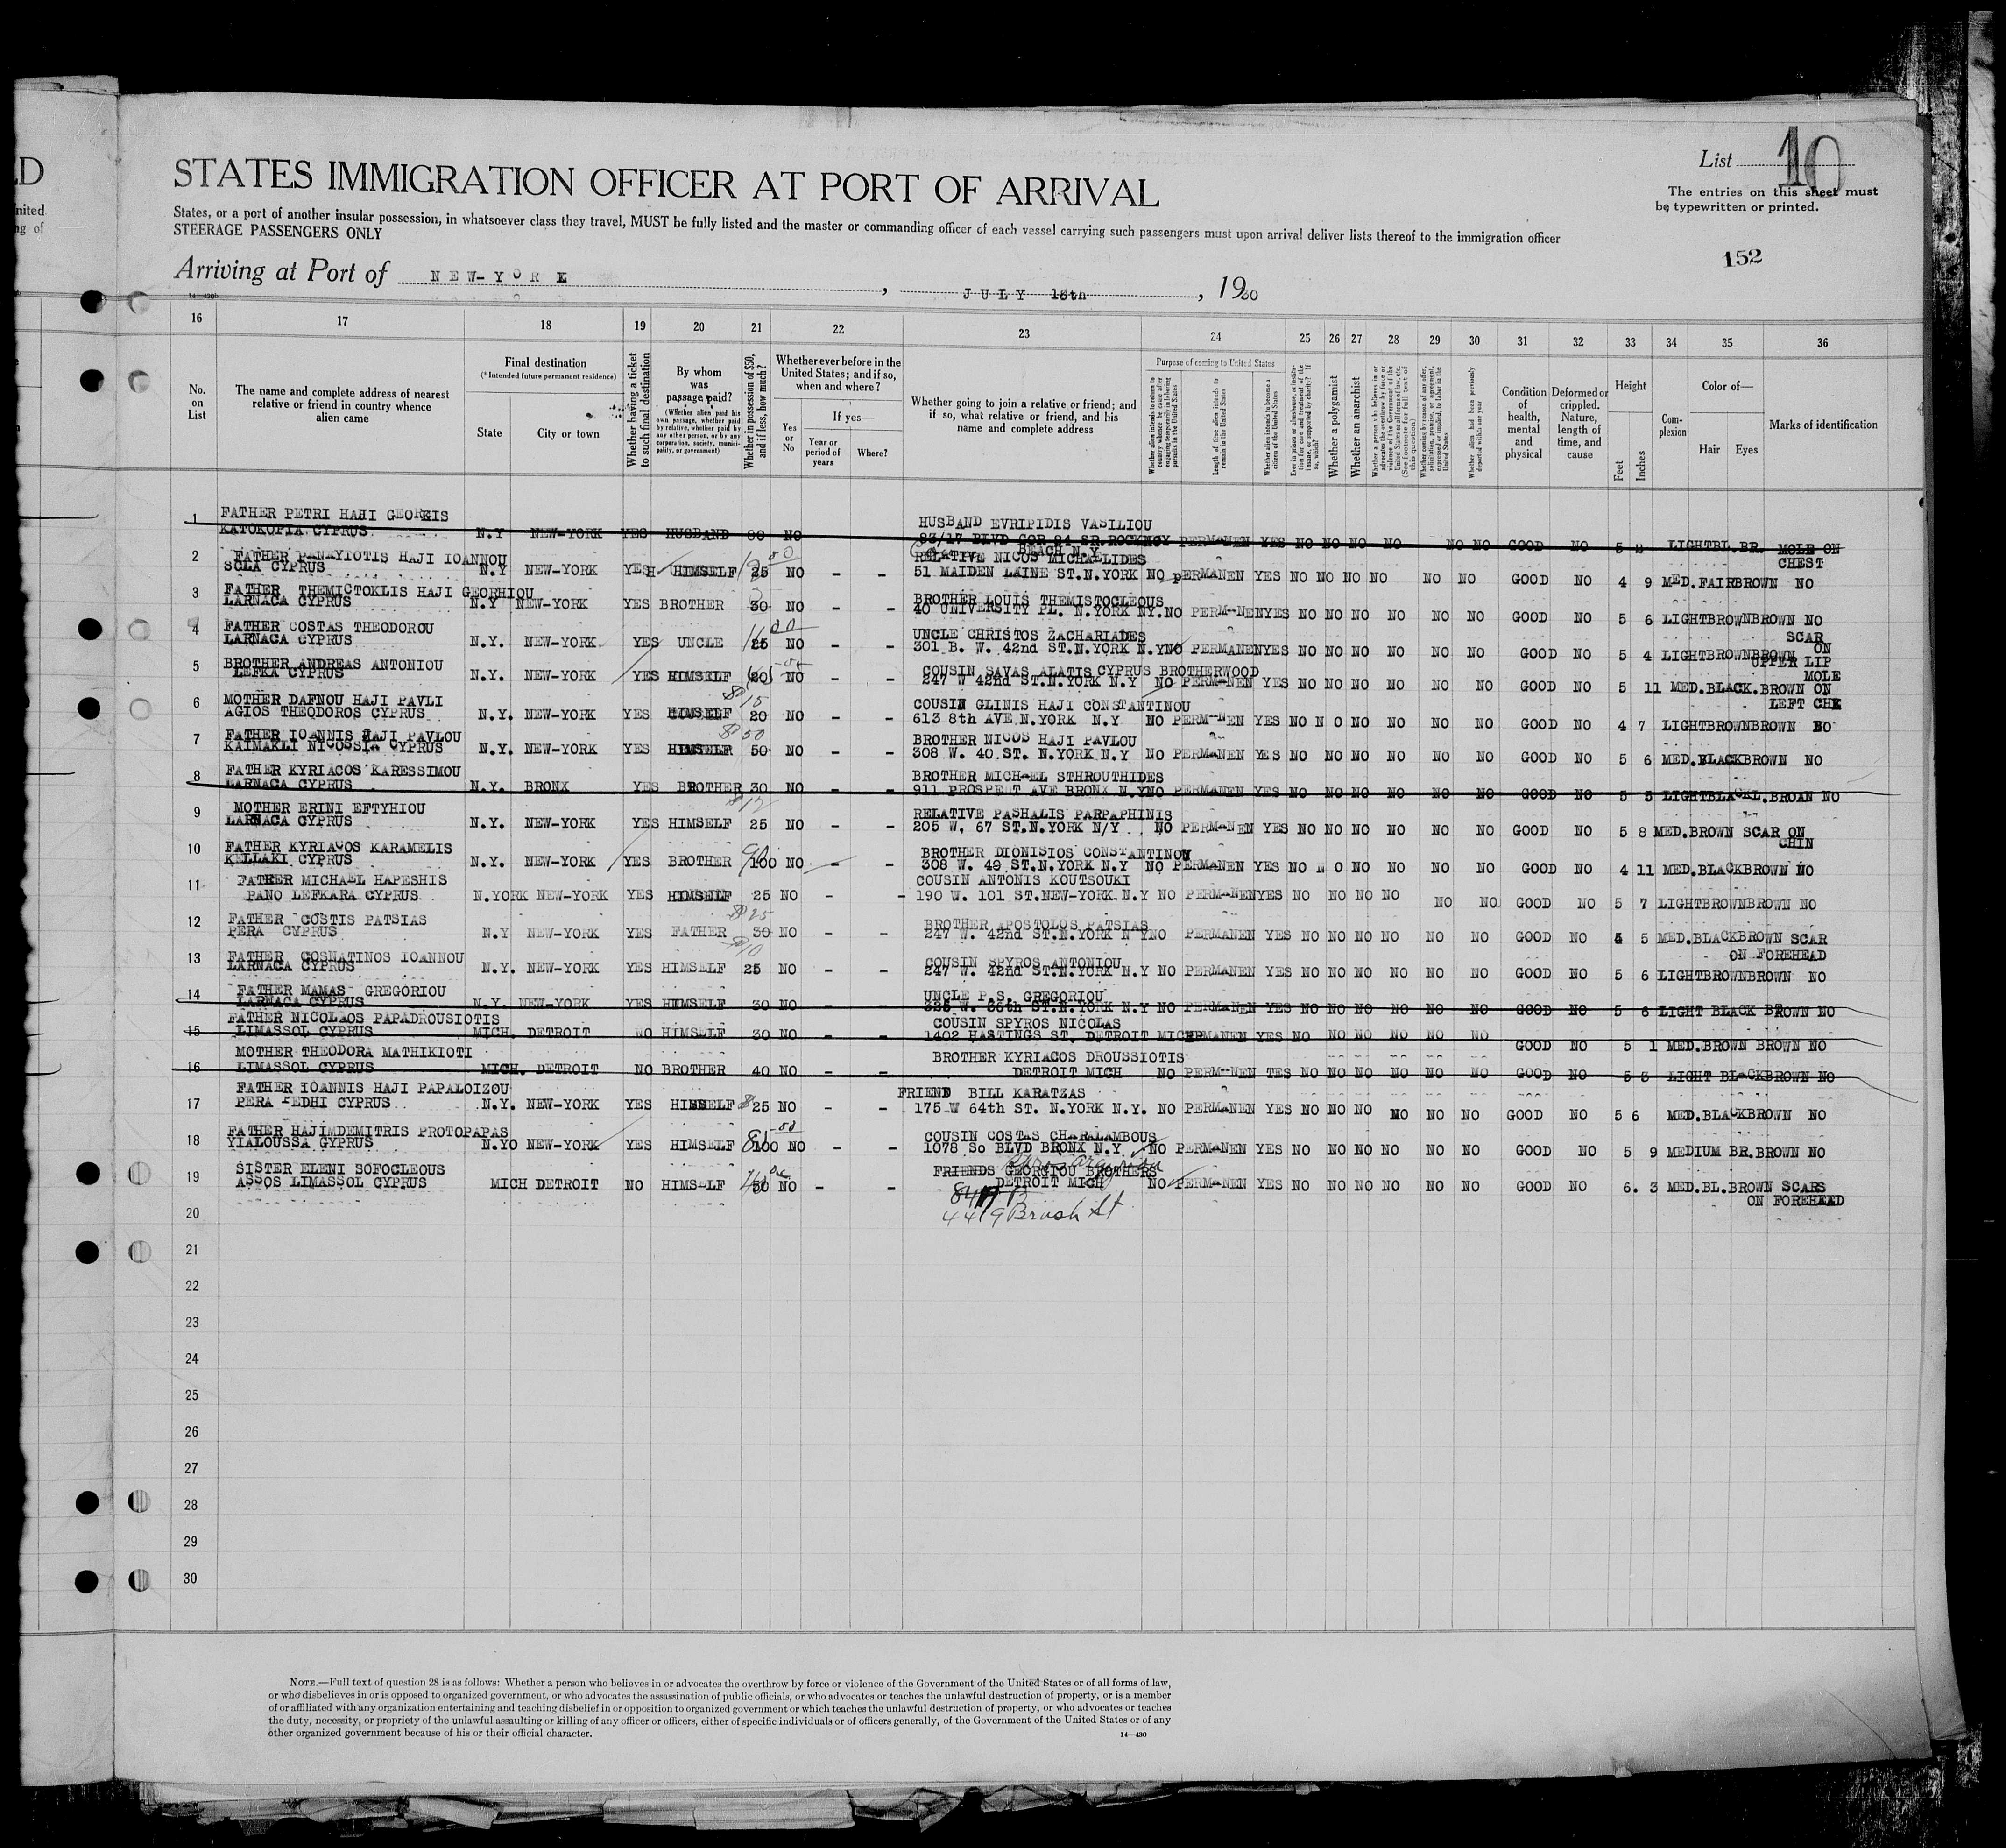 D
nited
ng of
List 10
The entries on this sheet must
be typewritten or printed.
STATES IMMIGRATION OFFICER AT PORT OF ARRIVAL
States, or a port of another insular possession, in whatsoever class they travel, MUST be fully listed and the master or commanding officer of each vessel carrying such passengers must upon arrival deliver lists thereof to the immigration officer
STEERAGE PASSENGERS ONLY
152
Arriving at Port of NEW-YORK, JULY 18th, 1930
16 17 18 19 20 21 22 23 24 25 26 27 28 29 30 31 32 33 34 35 36
No. on List
The name and complete address of nearest relative or friend in country whence alien came
Final destination
(*Intended future permanent residence)
State
City or town
Whether having a ticket to such final destination
By whom was passage paid?
(Whether alien paid his own passage, whether paid by relative, whether paid by any other person, or by any corporation, society, municipality, or government)
Whether in possession of $50, and if less, how much?
Whether ever before in the United States; and if so, when and where?
Yes or No
If yes—
Year or period of years
Where?
Whether going to join a relative or friend; and if so, what relative or friend, and his name and complete address
Purpose of coming to United States
Whether alien intends to return to country whence he came after engaging temporarily in laboring pursuits in the United States
Length of time alien intends to remain in the United States
Whether alien intends to become a citizen of the United States
Whether a polygamist
Whether an anarchist
Condition of health, mental and physical
Deformed or crippled. Nature, length of time, and cause
Height
Feet
Inches
Complexion
Color of—
Hair
Eyes
Marks of identification
1 FATHER PETRI HAJI GEORKIS HUSBAND EVRIPIDIS VASILIOU
KATOKOPIA CYPRUS N.Y NEW-YORK YES HUSBAND NO 93/17 BLVD COR 94 SR.ROCKWOY PERMANEN YES NO NO NO NO NO NO GOOD NO 5 LIGHTBL.BR. MOLE ON
BEACH N.Y CHEST
2 FATHER PANAYIOTIS HAJI IOANNOU RELATIVE NICOS MICHAELIDES
SCLA CYPRUS N.Y NEW-YORK YES HIMSELF 25 NO - - 51 MAIDEN LAINE ST.N.YORK NO PERMANEN YES NO NO NO NO NO NO GOOD NO 4 9 MED.FAIRBROWN NO
3 FATHER THEMICTOKLIS HAJI GEORHIOU BROTHER LOUIS THEMISTOCLEOUS
LARNACA CYPRUS N.Y NEW-YORK YES BROTHER 30 NO - - 40 UNIVERSITY PL. N.YORK NY.NO PERMANENYES NO NO NO NO NO NO GOOD NO 5 6 LIGHTBROWNBROWN NO
4 FATHER COSTAS THEODOROU UNCLE CHRISTOS ZACHARIADES SCAR
LARNACA CYPRUS N.Y. NEW-YORK YES UNCLE 25 NO - - 301 B. W. 42nd ST.N.YORK N.YNO PERMANENYES NO NO NO NO NO NO GOOD NO 5 4 LIGHTBROWNBROWN ON
UPPER LIP
5 BROTHER ANDREAS ANTONIOU COUSIN SAVAS ALATIS CYPRUS BROTHERWOOD MOLE
LEFKA CYPRUS N.Y. NEW-YORK YES HIMSELF NO - - 247 W 42nd ST.N.YORK N.Y NO PERMANEN YES NO NO NO NO NO NO GOOD NO 5 11 MED.BLACK.BROWN ON
LEFT CHK
6 MOTHER DAFNOU HAJI PAVLI $15 COUSIN GLINIS HAJI CONSTANTINOU
AGIOS THEODOROS CYPRUS N.Y. NEW-YORK YES HIMSELF 20 NO - - 613 8th AVE N.YORK N.Y NO PERMANEN YES NO N O NO NO NO NO GOOD NO 4 7 LIGHTBROWNBROWN NO
7 FATHER IOANNIS HAJI PAVLOU $50 BROTHER NICOS HAJI PAVLOU
KAIMAKLI NICOSSIA CYPRUS N.Y. NEW-YORK YES HIMSELF 50 NO - - 308 W. 40 ST. N.YORK N.Y NO PERMANEN YES NO NO NO NO NO NO GOOD NO 5 6 MED.BLACKBROWN NO
8 FATHER KYRIACOS KARESSIMOU BROTHER MICHAEL STHROUTHIDES
LARNACA CYPRUS N.Y. BRONX YES BROTHER 30 NO - - 911 PROSPECT AVE BRONX N.YNO PERMANEN YES NO NO NO NO NO NO GOOD NO 5 5 LIGHTBLACKL.BROAN NO
9 MOTHER ERINI EFTYHIOU RELATIVE PASHALIS PARPAPHINIS
LARNACA CYPRUS N.Y. NEW-YORK YES HIMSELF 25 NO - - 205 W. 67 ST.N.YORK N/Y NO PERMANEN YES NO NO NO NO NO NO GOOD NO 5 8 MED.BROWN SCAR ON
CHIN
10 FATHER KYRIACOS KARAMELIS BROTHER DIONISIOS CONSTANTINOU
KELLAKI CYPRUS N.Y. NEW-YORK YES BROTHER 100 NO - - 308 W. 49 ST.N.YORK N.Y NO PERMANEN YES NO N O NO NO NO NO GOOD NO 4 11 MED.BLACKBROWN NO
11 FATHER MICHAEL HAPESHIS COUSIN ANTONIS KOUTSOUKI
PANO LEFKARA CYPRUS N.YORK NEW-YORK YES HIMSELF 25 NO - - 190 W. 101 ST.NEW-YORK N.Y NO PERMANENYES NO NO NO NO NO NO GOOD NO 5 7 LIGHTBROWNBROWN NO
12 FATHER COSTIS PATSIAS $25 BROTHER APOSTOLOS PATSIAS
PERA CYPRUS N.Y NEW-YORK YES FATHER 30 NO - - 247 W. 42nd ST.N.YORK N YNO PERMANEN YES NO NO NO NO NO NO GOOD NO 5 MED.BLACKBROWN SCAR
ON FOREHEAD
13 FATHER COSNATINOS IOANNOU $10 COUSIN SPYROS ANTONIOU
LARNACA CYPRUS N.Y. NEW-YORK YES HIMSELF 25 NO - - 247 W. 42nd ST.N.YORK N.Y NO PERMANEN YES NO NO NO NO NO NO GOOD NO 5 6 LIGHTBROWNBROWN NO
14 FATHER MAMAS GREGORIOU UNCLE P.S. GREGORIOU
LARNACA CYPRUS N.Y. NEW-YORK YES HIMSELF 30 NO - - W. ST.N.YORK N.Y NO PERMANEN YES NO NO NO NO NO NO GOOD NO 5 6 LIGHT BLACK BROWN NO
15 FATHER NICOLAOS PAPADROUSIOTIS COUSIN SPYROS NICOLAS
LIMASSOL CYPRUS MICH. DETROIT NO HIMSELF 30 NO - - 1402 HASTINGS ST. DETROIT MICH YES NO NO NO NO NO NO GOOD NO 5 1 MED.BROWN BROWN NO
16 MOTHER THEODORA MATHIKIOTI BROTHER KYRIACOS DROUSSIOTIS
LIMASSOL CYPRUS MICH. DETROIT NO BROTHER 40 NO - - DETROIT MICH NO PERMANEN TES NO NO NO NO NO NO GOOD NO 5 3 LIGHT BLACKBROWN NO
17 FATHER IOANNIS HAJI PAPALOIZOU FRIEND BILL KARATZAS
PERA CYPRUS N.Y. NEW-YORK YES HIMSELF $25 NO - - 175 W 64th ST. N.YORK N.Y. NO PERMANEN YES NO NO NO NO NO NO GOOD NO 5 6 MED.BLACKBROWN NO
18 FATHER HAJIMDEMITRIS PROTOPAPAS COUSIN COSTAS CHARALAMBOUS
YIALOUSSA CYPRUS N.YO NEW-YORK YES HIMSELF 100 NO - - 1078 So BLVD BRONX N.Y NO PERMANEN YES NO NO NO NO NO NO GOOD NO 5 9 MEDIUM BR.BROWN NO
19 SISTER ELENI SOFOCLEOUS FRIENDS GEORGIOU BROTHERS
ASSOS LIMASSOL CYPRUS MICH DETROIT NO HIMSELF 50 NO - - DETROIT MICH NO PERMANEN YES NO NO NO NO NO NO GOOD NO 6. 3 MED.BL.BROWN SCARS
ON FOREHEAD
4419 Brush St
20
21
22
23
24
25
26
27
28
29
30
NOTE.—Full text of question 28 is as follows: Whether a person who believes in or advocates the overthrow by force or violence of the Government of the United States or of all forms of law,
or who disbelieves in or is opposed to organized government, or who advocates the assassination of public officials, or who advocates or teaches the unlawful destruction of property, or is a member
of or affiliated with any organization entertaining and teaching disbelief in or opposition to organized government or which teaches the unlawful destruction of property, or who advocates or teaches
the duty, necessity, or propriety of the unlawful assaulting or killing of any officer or officers, either of specific individuals or of officers generally, of the Government of the United States or of any
other organized government because of his or their official character.
14—430